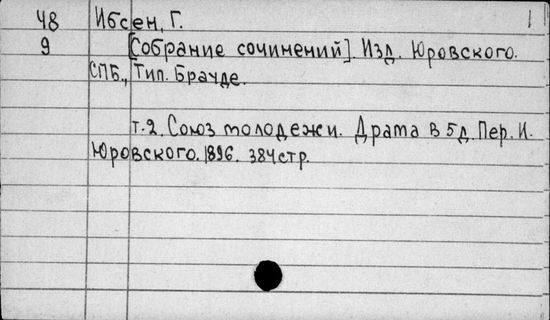 48 Ибсен, Г.
9 [Собрание сочинений]. Изд. Юровского.
СПБ., Тип. Брауде.
т.2. Союз молодежи. Драма в 5 д. Пер. И.
Юровского. 1896. 384 стр.